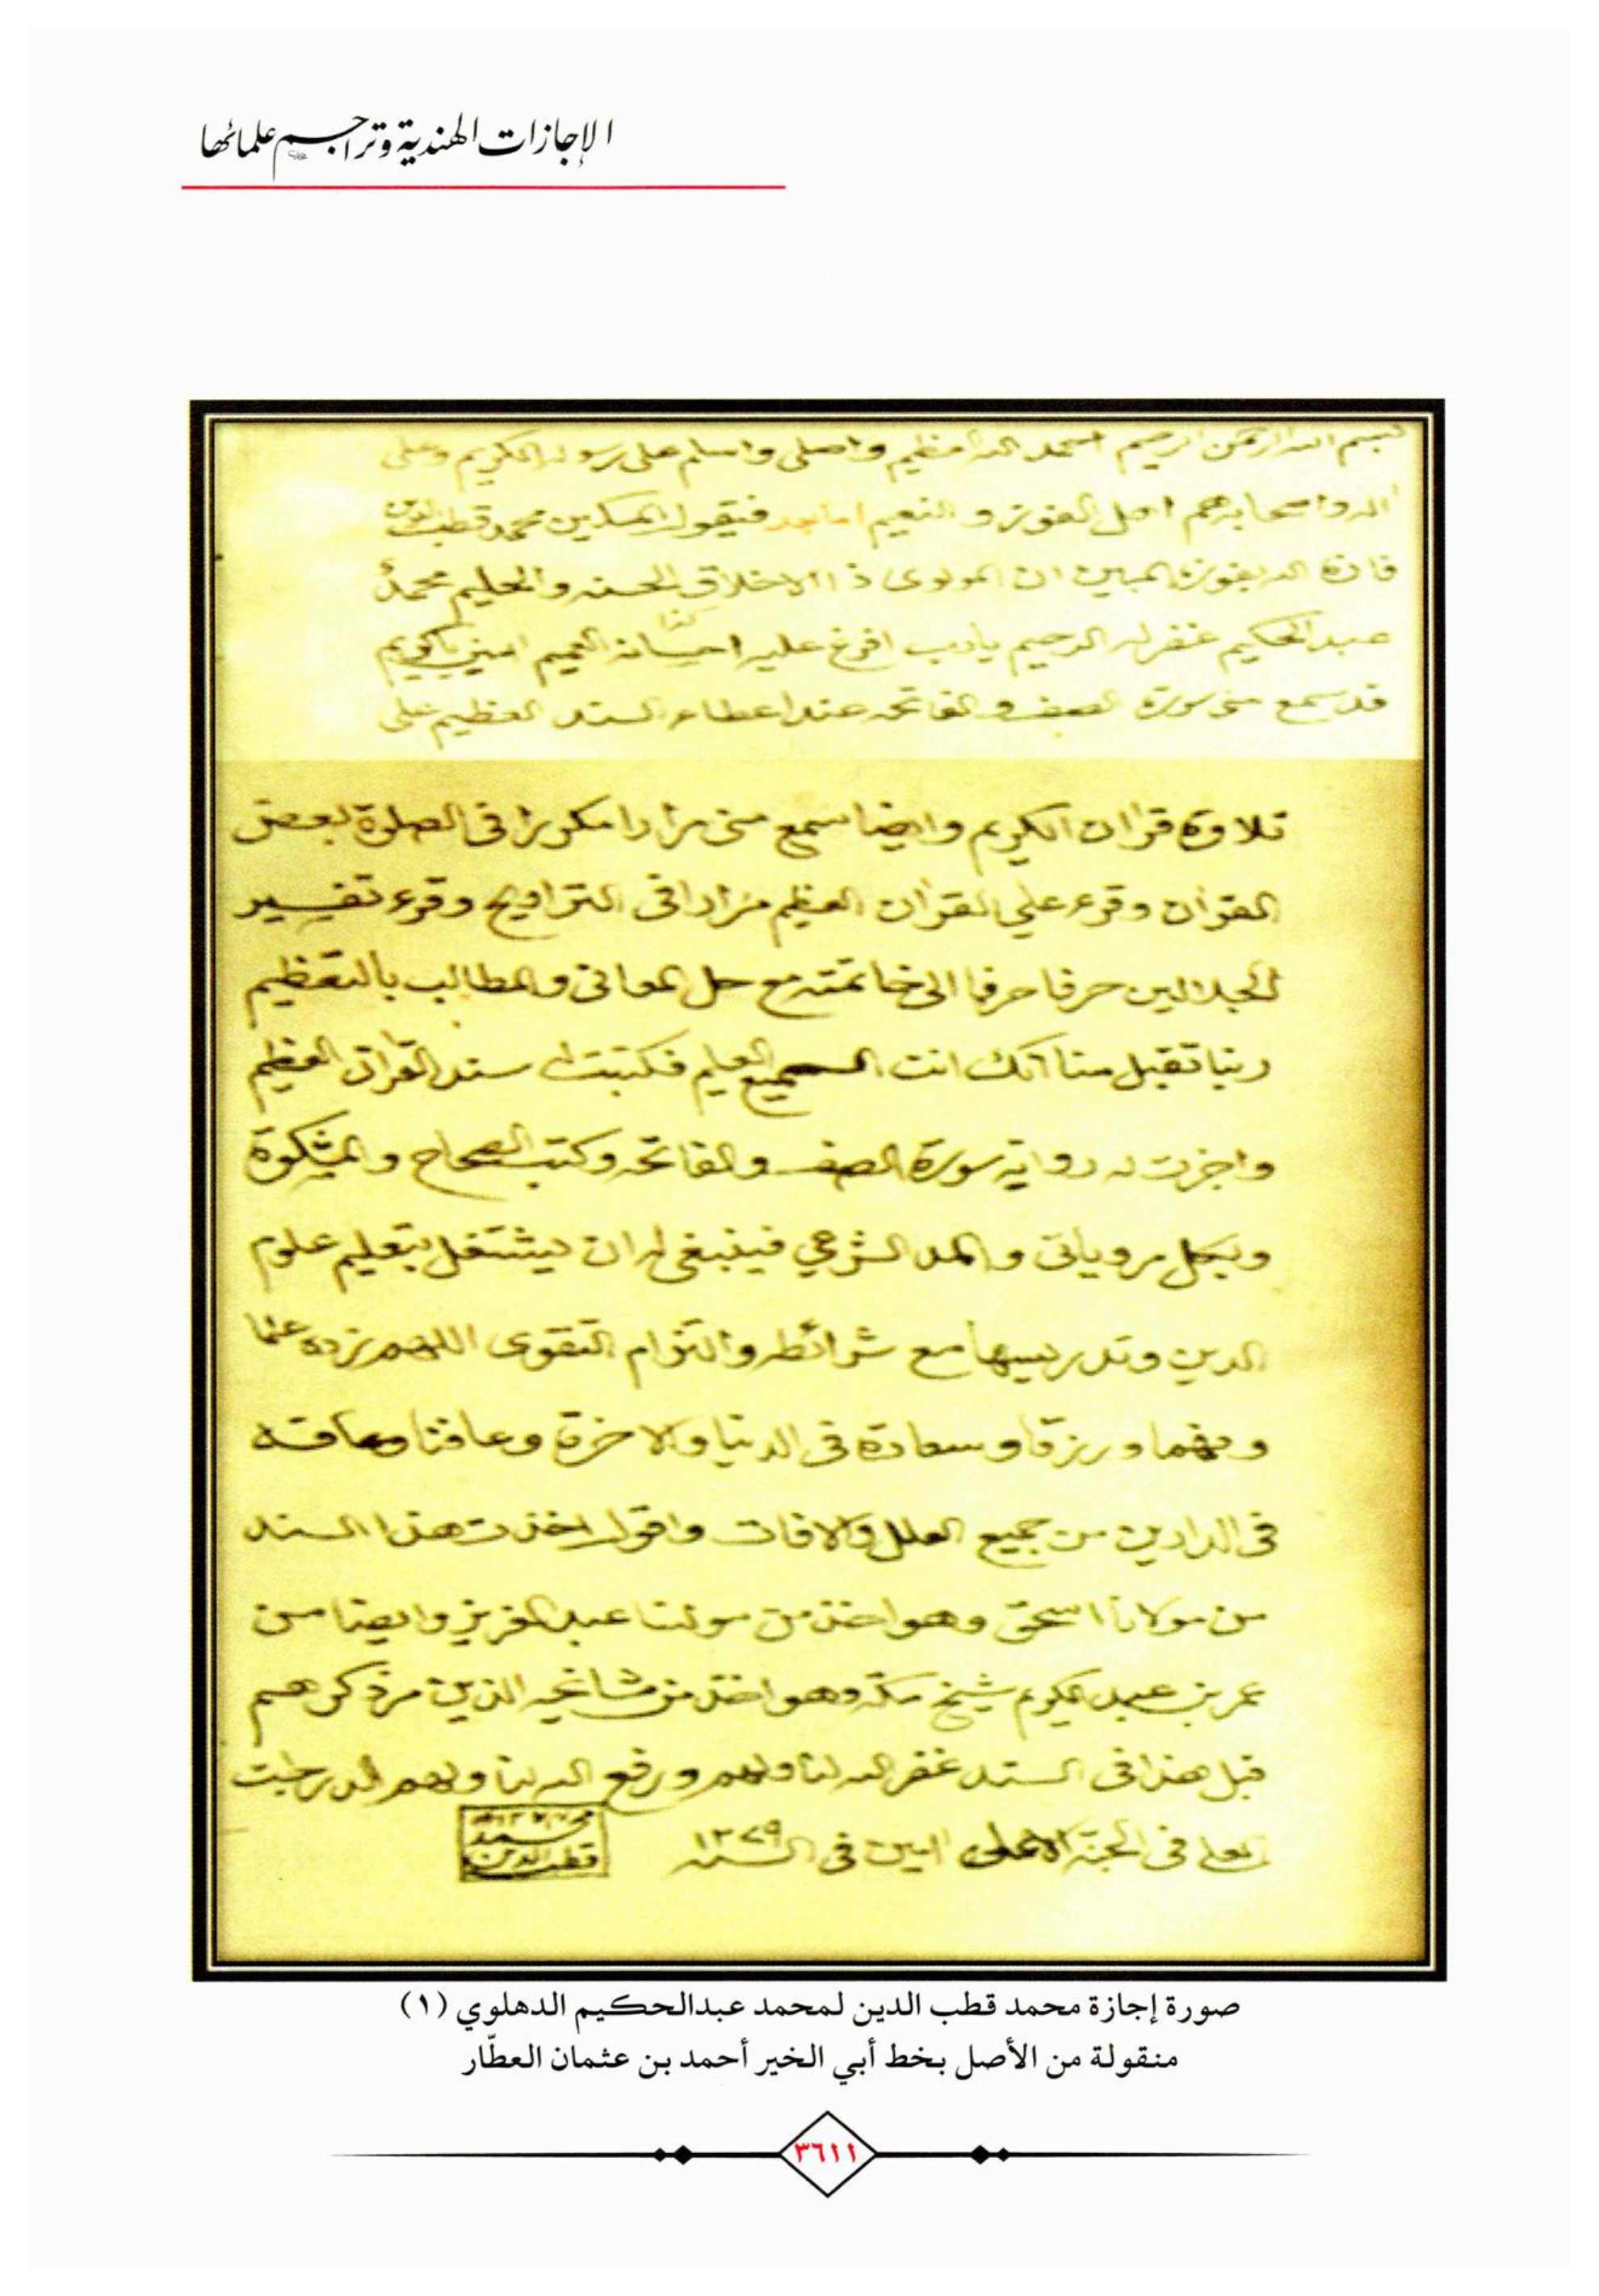 الإجازات الهندية وتراجم علمائها
بسم الله الرحمن الرحيم احمد الله العظيم واصلى واسلم على رسوله الكريم وعلى
اله واصحابه هم اهل الفوز والنعيم اما بعد فيقول المسكين محمد قطب الدين
فازه الله بفوزه المبين ان المولوى ذا الاخلاق الحسنه والحليم محمد
عبدالحكيم غفر له الرحيم يارب افرغ عليه احسانه كذا العميم امين ياكريم
قد سمع منى سورة الصف والفاتحه عند اعطاء السند العظيم على
تلاوة قران الكريم وايضا سمع منى مرارا مكررا فى الصلوة بعض
القران وقرء علي القران العظيم مرارا فى التراويح وقرء تفسير
الجلالين حرفا حرفا الى خاتمته مع حل المعانى والمطالب بالتعظيم
ربنا تقبل منا انك انت السميع العليم فكتبت له سند القران العظيم
واجزت له رواية سورة الصف والفاتحه وكتب الصحاح والمشكوة
وبكل مروياتى والمد الشرعي فينبغى له ان يشتغل بتعليم علوم
الدين وتدريسها مع شرائطه والتزام التقوى اللهم زده علما
وفهما ورزقا وسعادة فى الدنيا والاخرة وعافنا وعافه
فى الدارين من جميع العلل والافات واقول اخذت هذا السند
من مولانا اسحق وهو اخذ من مولنا عبد العزيز وايضا من
عمر بن عبد الكريم شيخ مكة وهو اخذ من مشائخيه الذين مر ذكرهم
قبل هذا فى السند غفر الله لنا ولهم ورفع الله لنا ولهم الدرجات
العلى فى الجنة الاعلى امين فى السنه ١٢٧٩
محمد
قطب الدين
صورة إجازة محمد قطب الدين لمحمد عبدالحكيم الدهلوي (١)
منقولة من الأصل بخط أبي الخير أحمد بن عثمان العطّار
٣٦١١